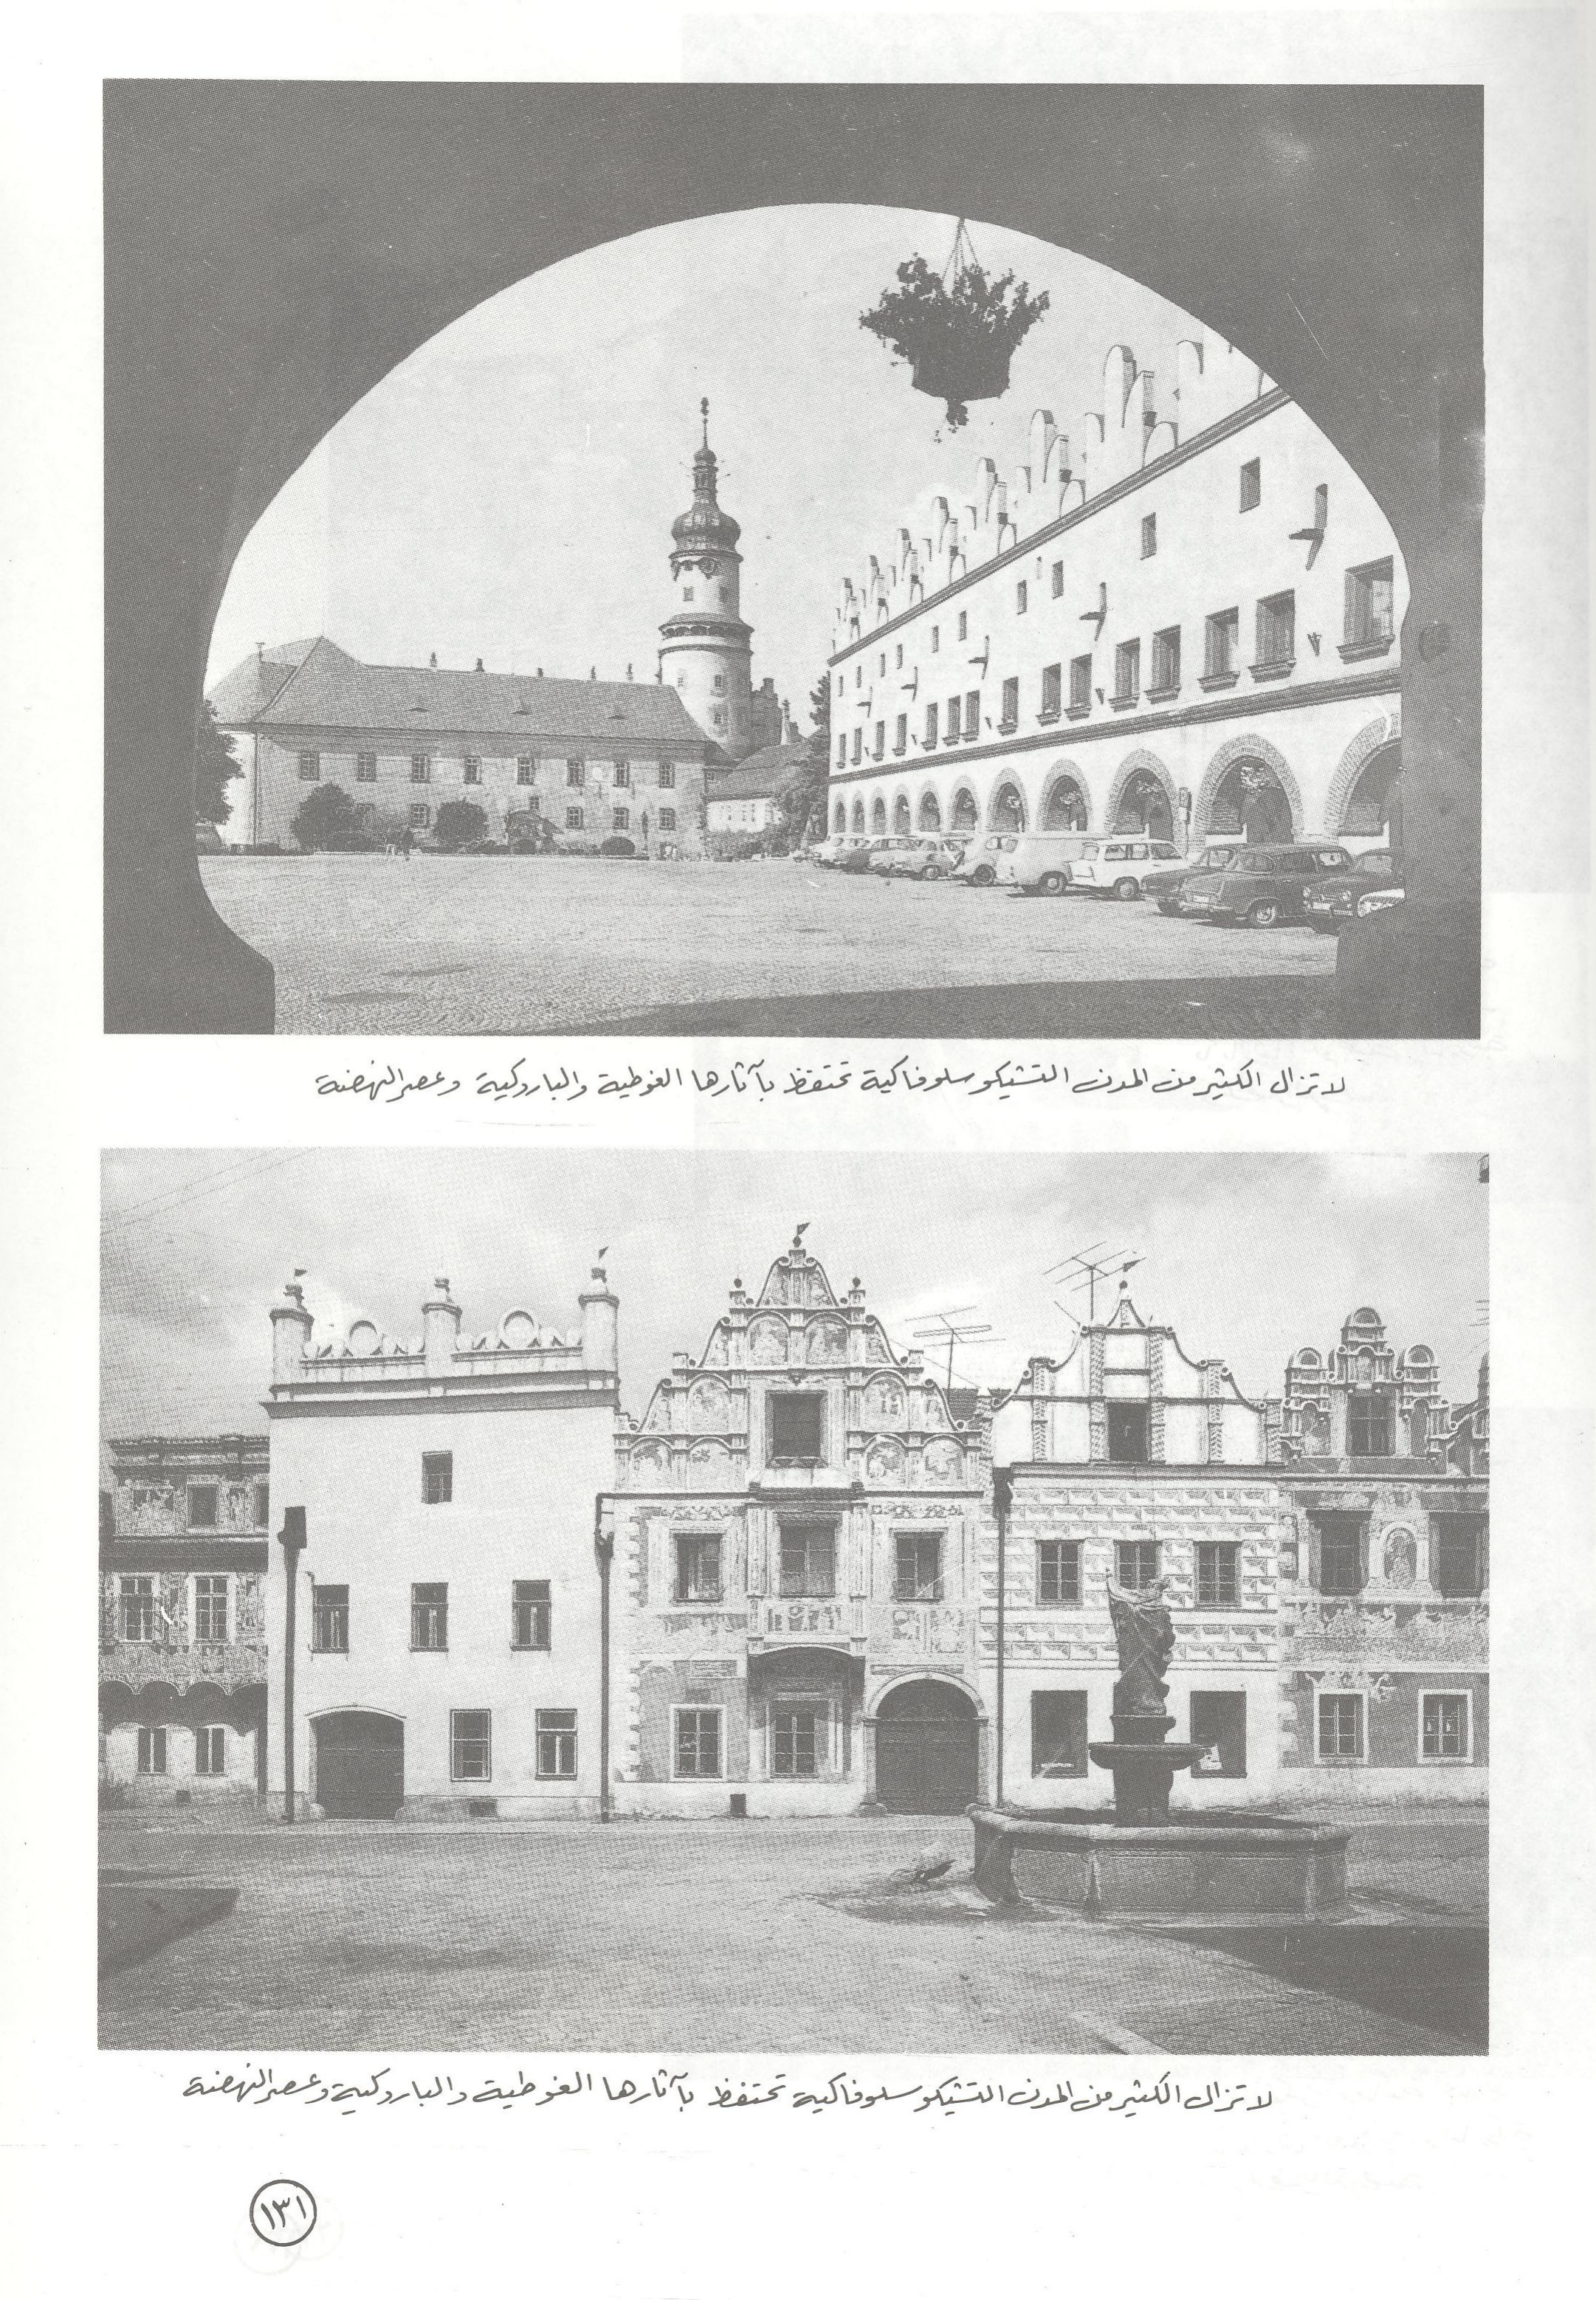 لا تزال الكثير من المدن التشيكوسلوفاكية تحتفظ بآثارها الغوطية والباروكية وعصر النهضة
لا تزال الكثير من المدن التشيكوسلوفاكية تحتفظ بآثارها الغوطية والباروكية وعصر النهضة
١٣١